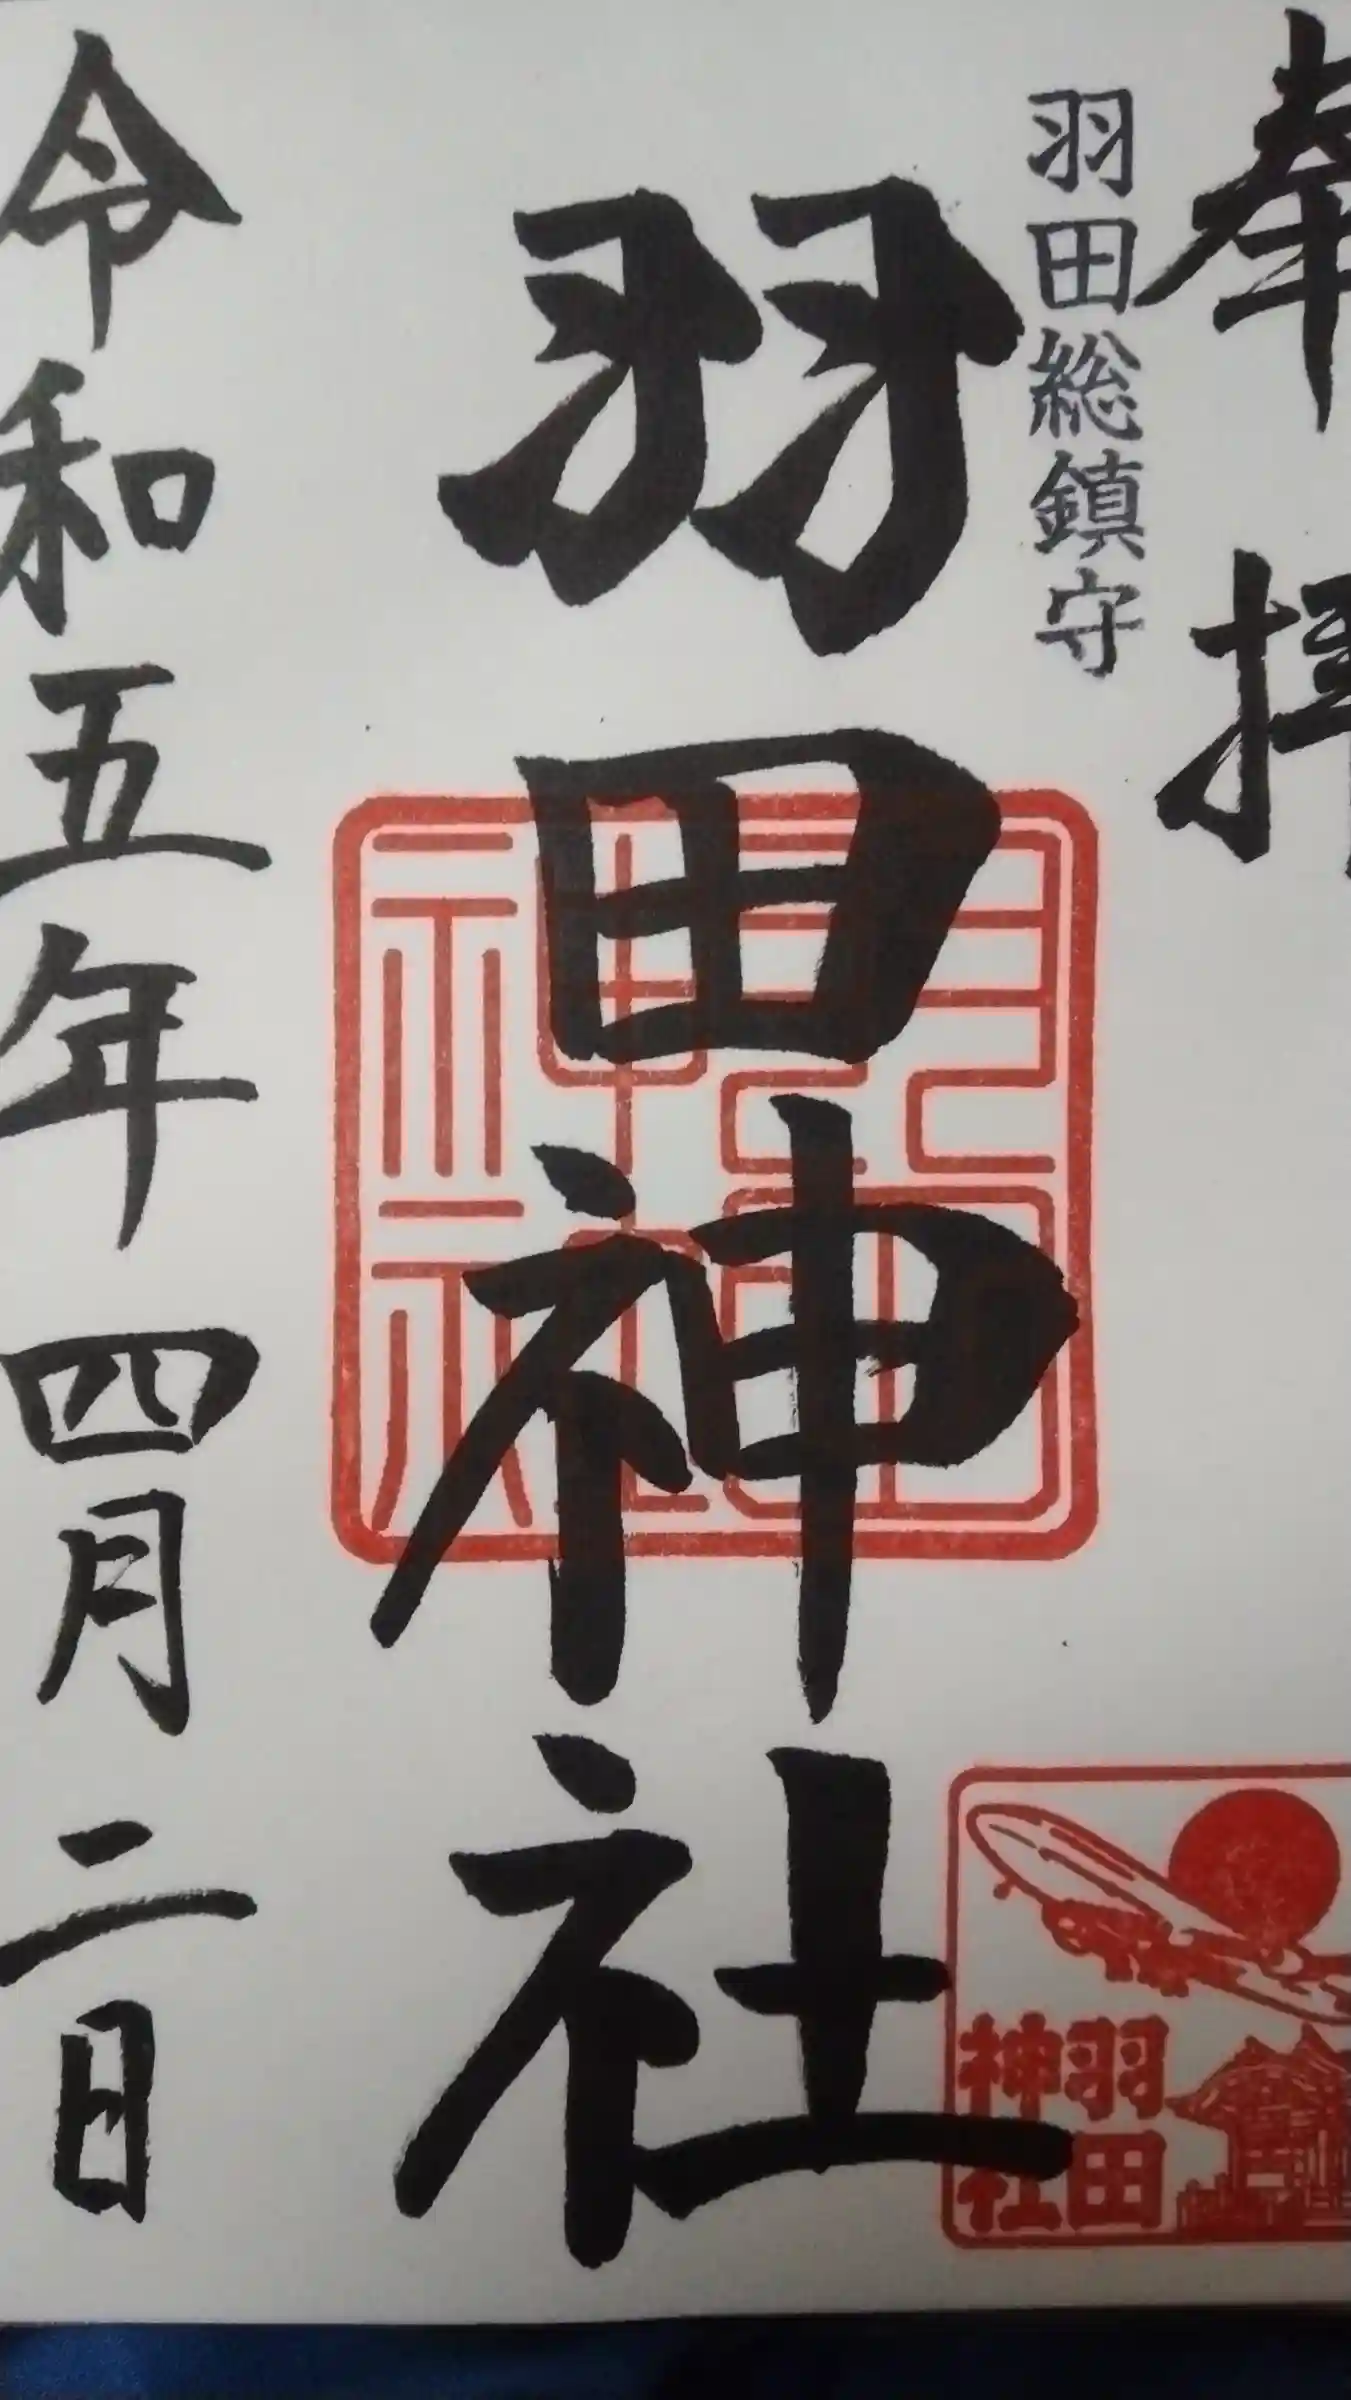 奉拝
羽田総鎮守
羽田神社
羽田
神社
羽田
神社
令和五年四月二日